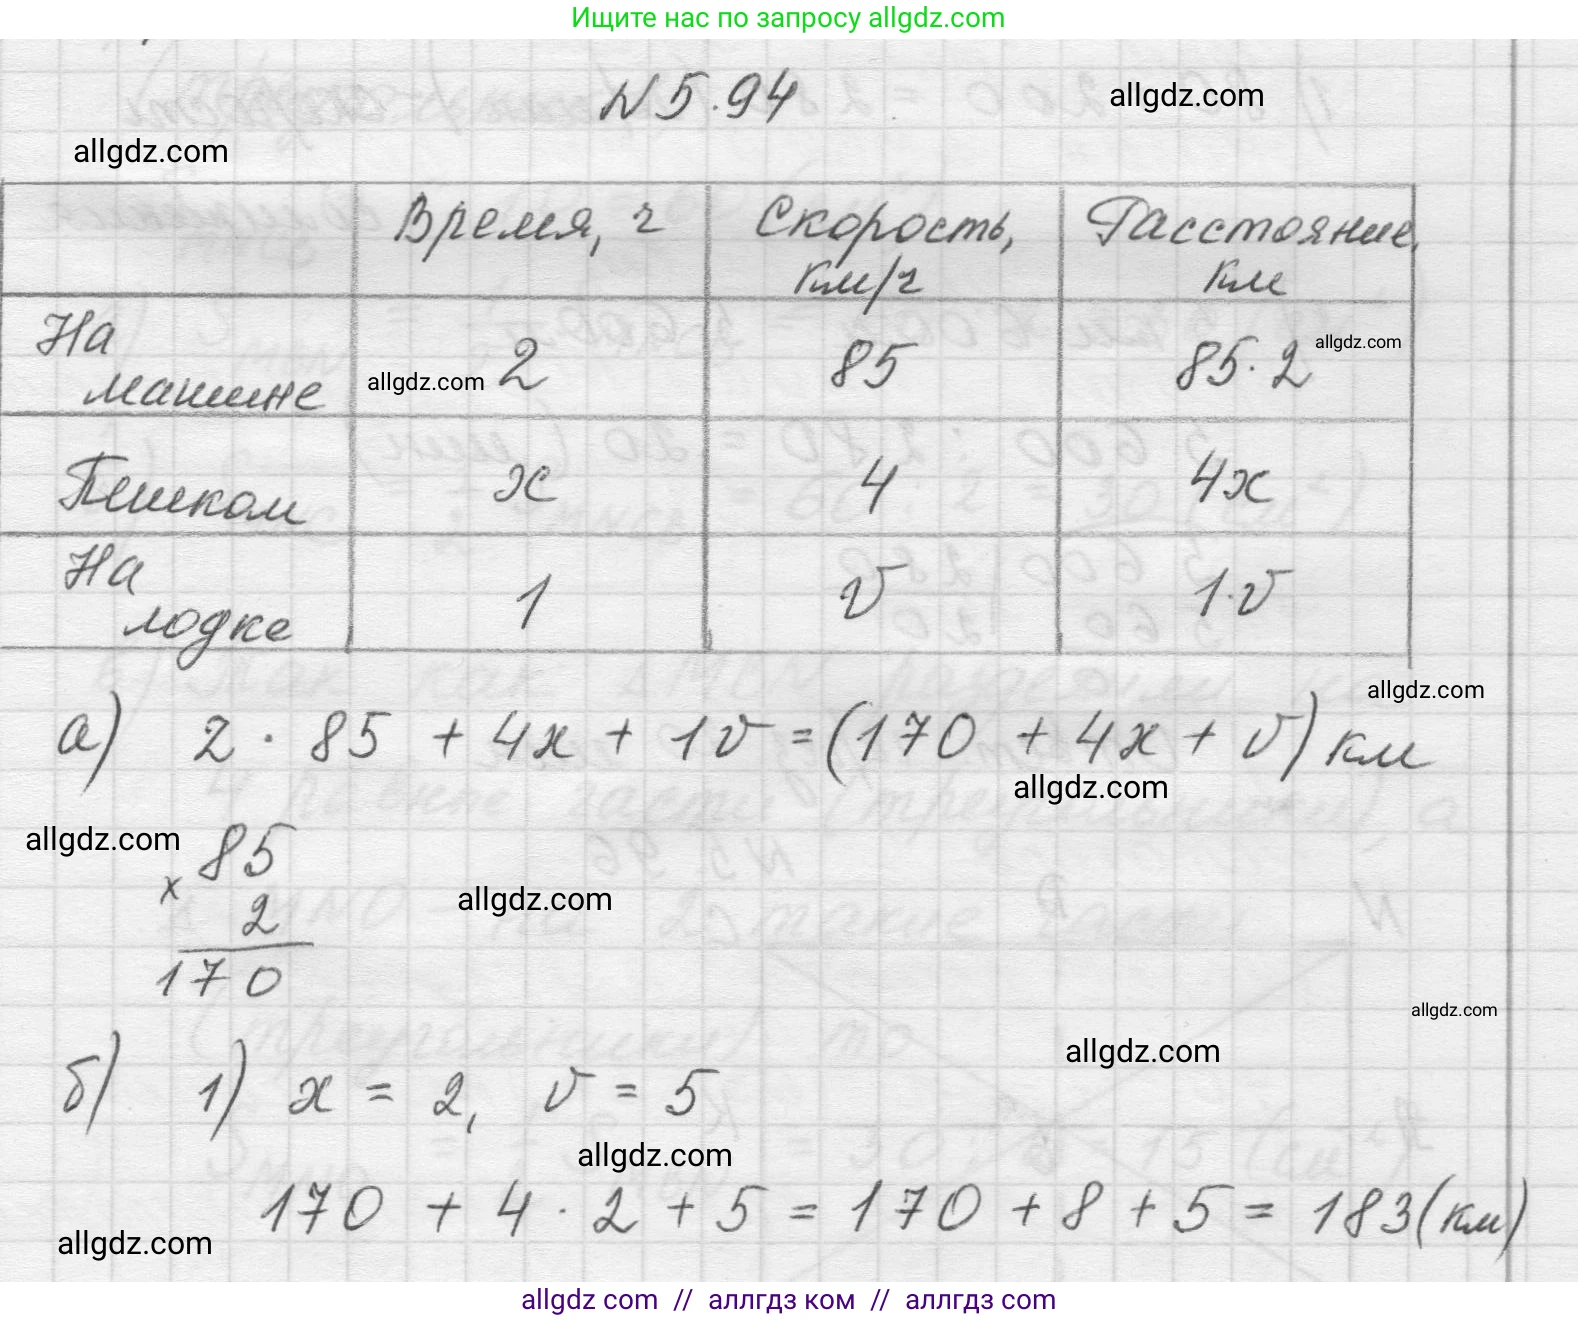 Ищите нас по запросу allgdz.com
N 5.94
allgdz.com
allgdz.com
Время, ч
Скорость, км/ч
Расстояние, км
На машине
allgdz.com
2
85
85·2
allgdz.com
Пешком
x
4
4x
На лодке
1
v
1·v
allgdz.com
а) 2 · 85 + 4x + 1v = (170 + 4x + v) км
allgdz.com
allgdz.com
85
x
2
170
allgdz.com
allgdz.com
allgdz.com
б) 1) x = 2, v = 5
allgdz.com
170 + 4 · 2 + 5 = 170 + 8 + 5 = 183 (км)
allgdz.com
allgdz com // аллгдз ком // аллгдз com